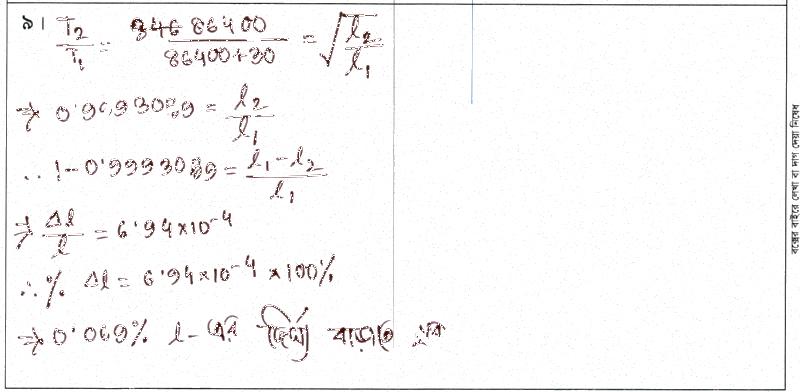 ৯। T₂/T₁ = 86400/(86400+30) = √(l₂/l₁)
⇒ 0.9993089 = l₂/l₁
∴ 1-0.9993089 = (l₁-l₂)/l₁
⇒ Δl/l = 6.94×10⁻⁴
∴ % Δl = 6.94×10⁻⁴ × 100%
⇒ 0.069% l-এর দৈর্ঘ্য বাড়াতে হবে
বক্সের বাইরে লেখা বা দাগ দেয়া নিষেধ